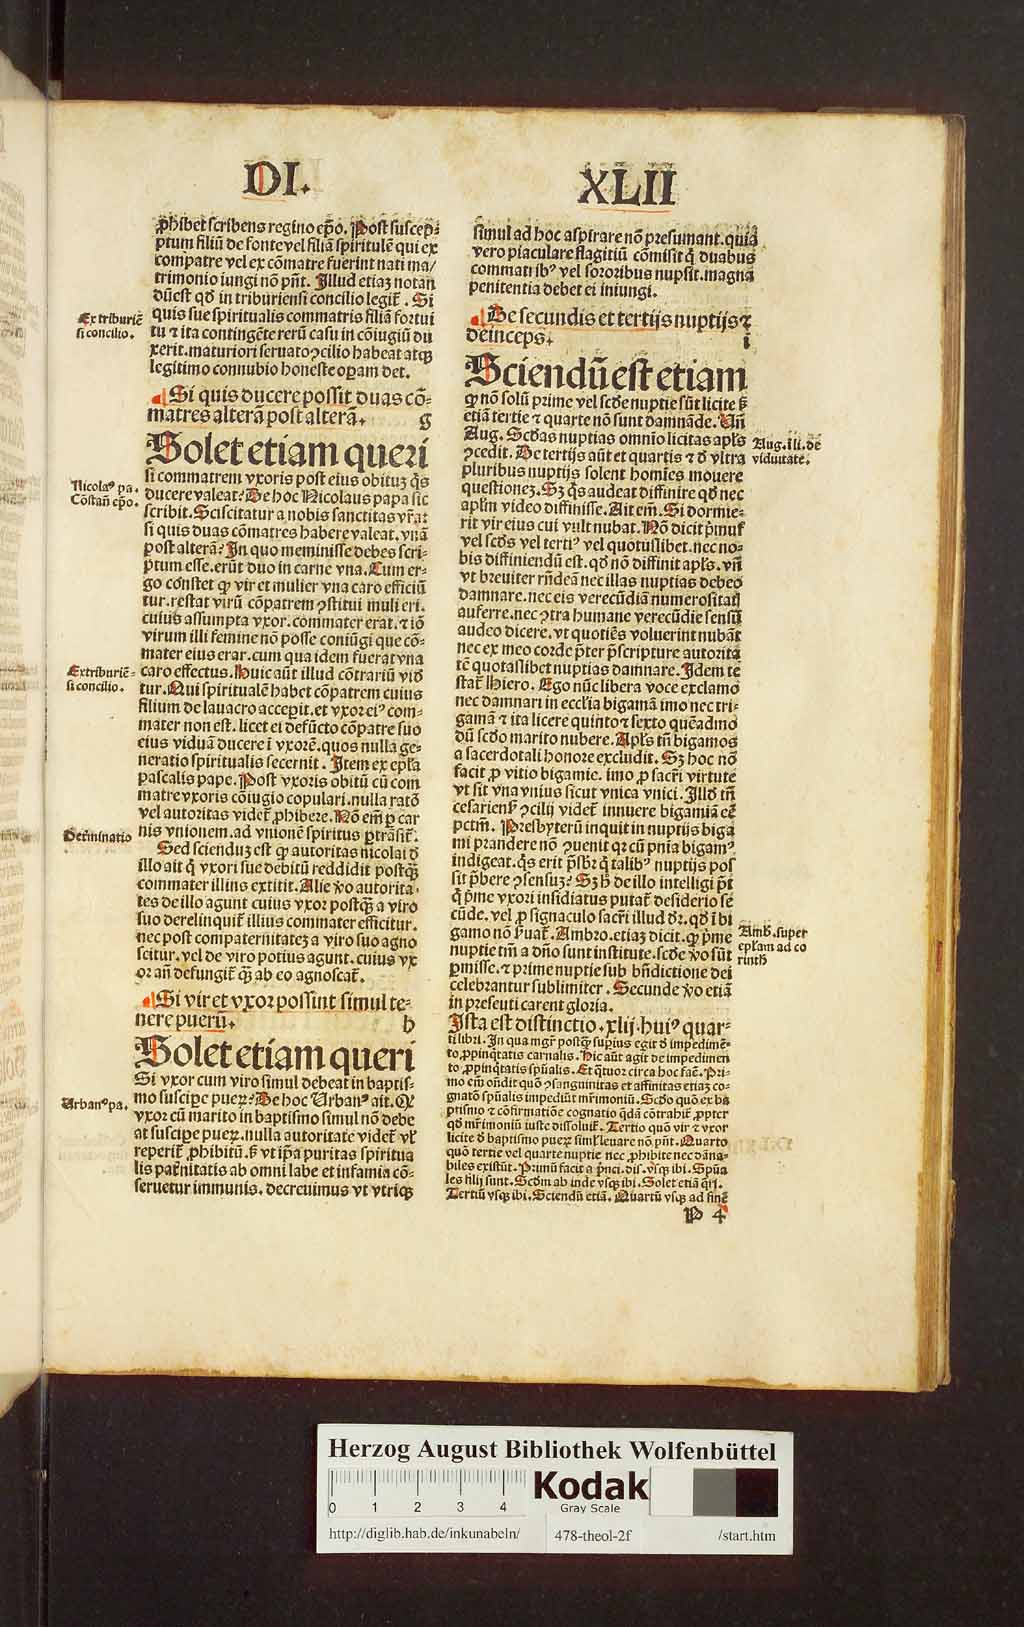 DI.
XLII
ꝓhibet scribens regino ep̃o. Post suscep⸗
ptum filiũ de fonte vel filiã spiritulẽ qui ex
compatre vel ex cõmatre fuerint nati ma/
trimonio iungi nõ pñt. Illud etiaȝ notan
dũ est qđ in triburiensi concilio legit̃. Si
quis sue spiritualis commatris filiã fortui
tu ⁊ ita contingẽte rerũ casu in cõiugiũ du
xerit. maturiori seruato ꝯcilio habeat atqȝ
legitimo connubio honeste oꝑam det.
Ex triburiẽ
si concilio.
Si quis ducere possit duas cõ⸗
matres alterã post alterã. g
Solet etiam queri
si commatrem vxoris post eius obituȝ q̃s
ducere valeat? De hoc Nicolaus papa sic
scribit. Sciscitatur a nobis sanctitas vr̃a:
si quis duas cõmatres habere valeat. vnã
post alterã? In quo meminisse debes scri⸗
ptum esse. erũt duo in carne vna. Cum er⸗
go constet ꝙ vir et mulier vna caro efficiũ
tur. restat virũ cõpatrem ꝯstitui muli eri.
cuius assumpta vxor. commater erat. ⁊ iõ
virum illi femine nõ posse coniũgi que cõ⸗
mater eius erat. cum qua idem fuerat vna
caro effectus. Huic aũt illud cõtrariũ vid̃
tur. Qui spiritualẽ habet cõpatrem cuius
filium de lauacro accepit. et vxor eiꝰ com⸗
mater non est. licet ei defũcto cõpatre suo
eius viduã ducere ĩ vxorẽ. quos nulla ge⸗
neratio spiritualis secernit. Item ex ep̃la
pascalis pape. Post vxoris obitũ cũ com
matre vxoris cõiugio copulari. nulla ratõ
vel autoritas videt̃ ꝓhibere. Nõ em̃ ꝑ car
nis vnionem. ad vnionẽ spiritus ꝑtrãsit̃.
Nicolaꝰ pa.
Cõstañ ep̃o.
Ex triburiẽ⸗
si concilio.
Determ̃inatio
Sed scienduȝ est ꝙ autoritas nicolai đ
illo ait q̃ vxori sue debitũ reddidit postq̃ȝ
commater illius extitit. Alie ṽo autorita⸗
tes de illo agunt cuius vxor postq̃ȝ a viro
suo derelinquit̃ illius commater efficitur.
nec post compaternitateȝ a viro suo agno
scitur. vel de viro potius agunt. cuius vx
or añ defungit̃ q̃ȝ ab eo agnoscat̃.
Si vir et vxor possint simul te⸗
nere puerũ. h
Solet etiam queri
Si vxor cum viro simul debeat in baptis⸗
mo suscipe pueꝝ? De hoc Urbanꝰ ait. Qꝫ
vxor cũ marito in baptismo simul nõ debe
at suscipe pueꝝ. nulla autoritate videt̃ vl̃
reperit̃ ꝓhibitũ. s̃ vt ip̃a puritas spiritua
lis pat̃nitatis ab omni labe et infamia cõ⸗
seruetur immunis. decreuimus vt vtriqȝ
Urbanꝰ pa.
simul ad hoc aspirare nõ presumant. quia
vero piaculare flagitiũ cõmisit q̃ duabus
commati ibꝰ vel sororibus nupsit. magna
penitentia debet ei iniungi.
De secundis et tertijs nuptijs ⁊
deinceps. i
Sciendũ est etiam
ꝙ nõ solũ prime vel scđe nuptie sũt licite s̃
etiã tertie ⁊ quarte nõ sunt damnãde. Uñ
Aug. Scđas nuptias omnĩo licitas apl̃s
ꝯcedit. De tertijs aũt et quartis ⁊ đ vltra
pluribus nuptijs solent homĩes mouere
questioneȝ. Sȝ q̃s audeat diffinire qđ nec
apl̃m video diffinisse. Ait em̃. Si dormie⸗
rit vir eius cui vult nubat. Nõ dicit p̃mus
vel scđs vel tertiꝰ vel quotuslibet. nec no⸗
bis diffiniendũ est. qđ nõ diffinit apl̃s. vñ
vt breuiter rñdeã nec illas nuptias debeo
damnare. nec eis verecũdiã numerositatis
auferre. nec ꝯtra humane verecũdie sensũ
audeo dicere. vt quotiẽs voluerint nubãt
nec ex meo corde p̃ter p̃scripture autorita
tẽ quotaslibet nuptias damnare. Idem te
stat̃ Hiero. Ego nũc libera voce exclamo
nec damnari in ecclĩa bigamã imo nec tri⸗
gamã ⁊ ita licere quinto ⁊ sexto quẽadmo
dũ scđo marito nubere. Apl̃s tñ bigamos
a sacerdotali honore excludit. Sȝ hoc nõ
facit ꝓ vitio bigamie. imo ꝓ sacr̃i virtute
vt sit vna vnius sicut vnica vnici. Illđ tñ
cesarienẽ ꝯcilij videt̃ innuere bigamiã eẽ
pctm̃. Presbyterũ inquit in nuptijs biga
mi prandere nõ ꝯuenit qꝛ cũ pñia bigamꝰ
indigeat. q̃s erit p̃sbr̃ q̃ talibꝰ nuptijs pos
sit p̃bere ꝯsensuȝ? Sȝ h̃ de illo intelligi p̃t
q̃ p̃me vxori insidiatus putat̃ desiderio se
cũde. vel ꝓ signaculo sacr̃i illud đr. qđ ĩ bi
gamo nõ ẽuat̃. Ambro. etiaȝ dicit. ꝙ p̃me
nuptie tm̃ a dño sunt institute. scđe ṽo sũt
ꝑmisse. ⁊ prime nuptie sub bñdictione dei
celebrantur sublimiter. Secunde ṽo etiã
in presenti carent gloria.
Aug. ĩ li. de
viduitate.
Amb. super
ep̃lam ad co
rinth̃
Ista est distinctio. xlij. huiꝰ quar⸗
ti libri. In qua mg̃r postq̃ȝ supius egit đ impedimẽ⸗
to ꝓpinq̃tatis carnalis. Hic aũt agit de impedimen
to ꝓpinq̃tatis spũalis. Et q̃tuor circa hoc fac̃. Pri⸗
mo em̃ oñdit quõ ꝯsanguinitas et affinitas etiaȝ co⸗
gnatõ spũalis impediũt mr̃imoniũ. Scđo quõ ex ba
ptismo ⁊ cõfirmatiõe cognatio q̃dã cõtrahit̃. ꝓpter
qđ mr̃imoniũ iuste dissoluit̃. Tertio quõ vir ⁊ vxor
licite đ baptismo pueꝝ siml̃ leuare nõ pñt. Quarto
quõ tertie vel quarte nuptie nec ꝓhibite nec dãna⸗
biles existũt. Primũ facit a p̃nci. dis. vsqȝ ibi. Spũa
les filij sunt. Scđm ab inde vsqȝ ibi. Solet etiã q̃ri.
Tertiũ vsqȝ ibi. Sciendũ etiã. Quartũ vsqȝ ad finẽ
P 4
Herzog August Bibliothek Wolfenbüttel
0 1 2 3 4
Kodak
Gray Scale
http://diglib.hab.de/inkunabeln/ 478-theol-2f /start.htm